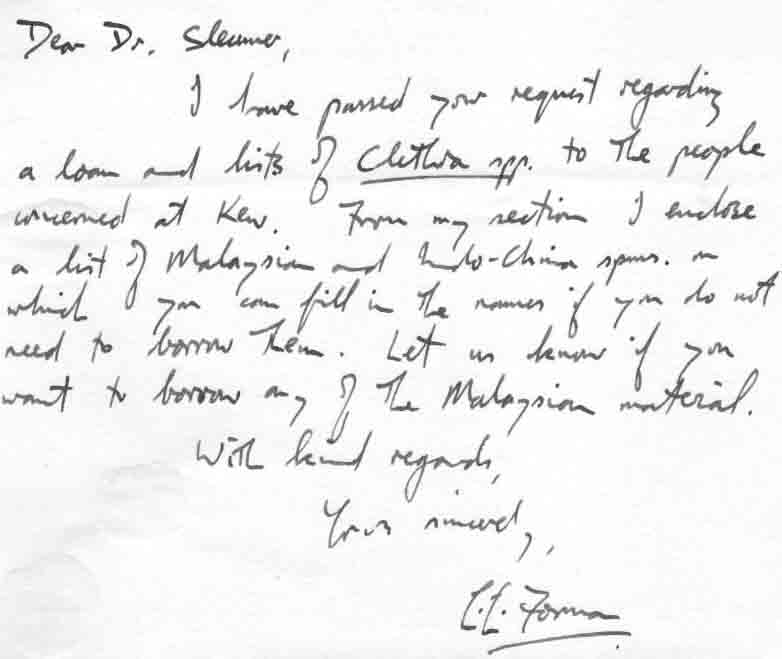 Dear Dr. Sleumer,
I have passed your request regarding
a loan and lists of Clethra spp. to the people
concerned at Kew. From my section I enclose
a list of Malaysian and Indo-China spms. on
which you can fill in the names if you do not
need to borrow them. Let us know if you
want to borrow any of the Malaysian material.
With kind regards,
Yours sincerely,
L.L. Forman